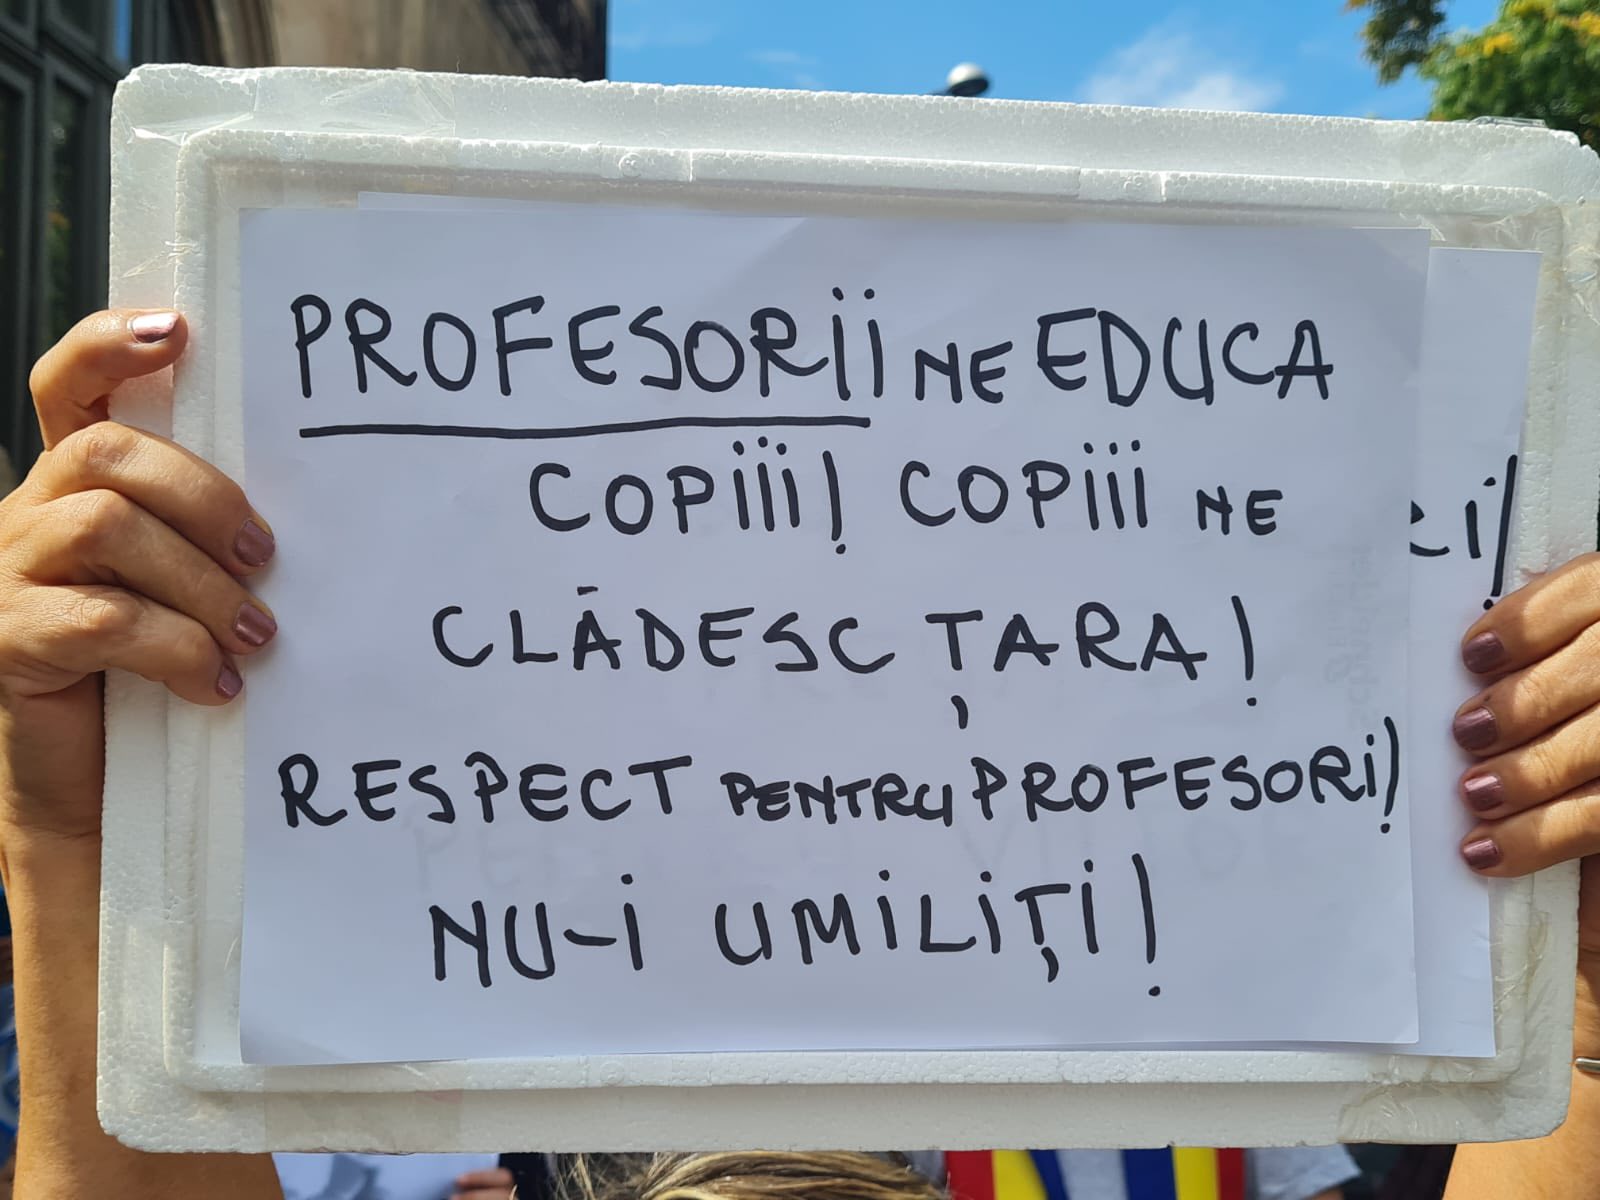 PROFESORII NE EDUCA
COPIII! COPIII NE
CLĂDESC ȚARA!
RESPECT PENTRU PROFESORI!
NU-I UMILIȚI!